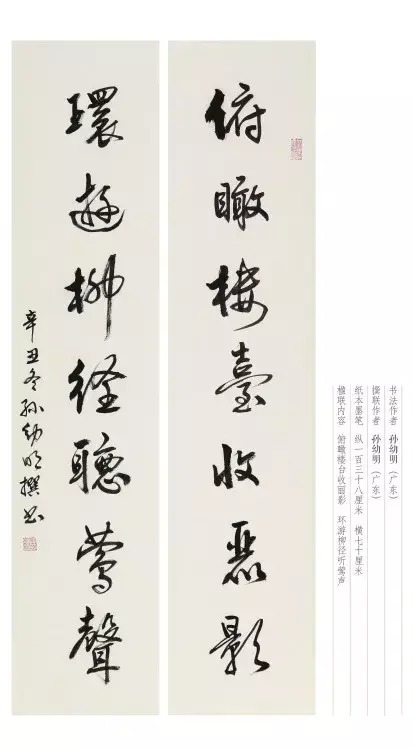 俯瞰楼臺收麗影
環遊柳径聽鶯聲
辛丑冬孙幼明撰书
书法作者 孙幼明（广东）
撰联作者 孙幼明（广东）
纸本墨笔 纵一百三十八厘米 横七十厘米
楹联内容 俯瞰楼台收丽影 环游柳径听莺声